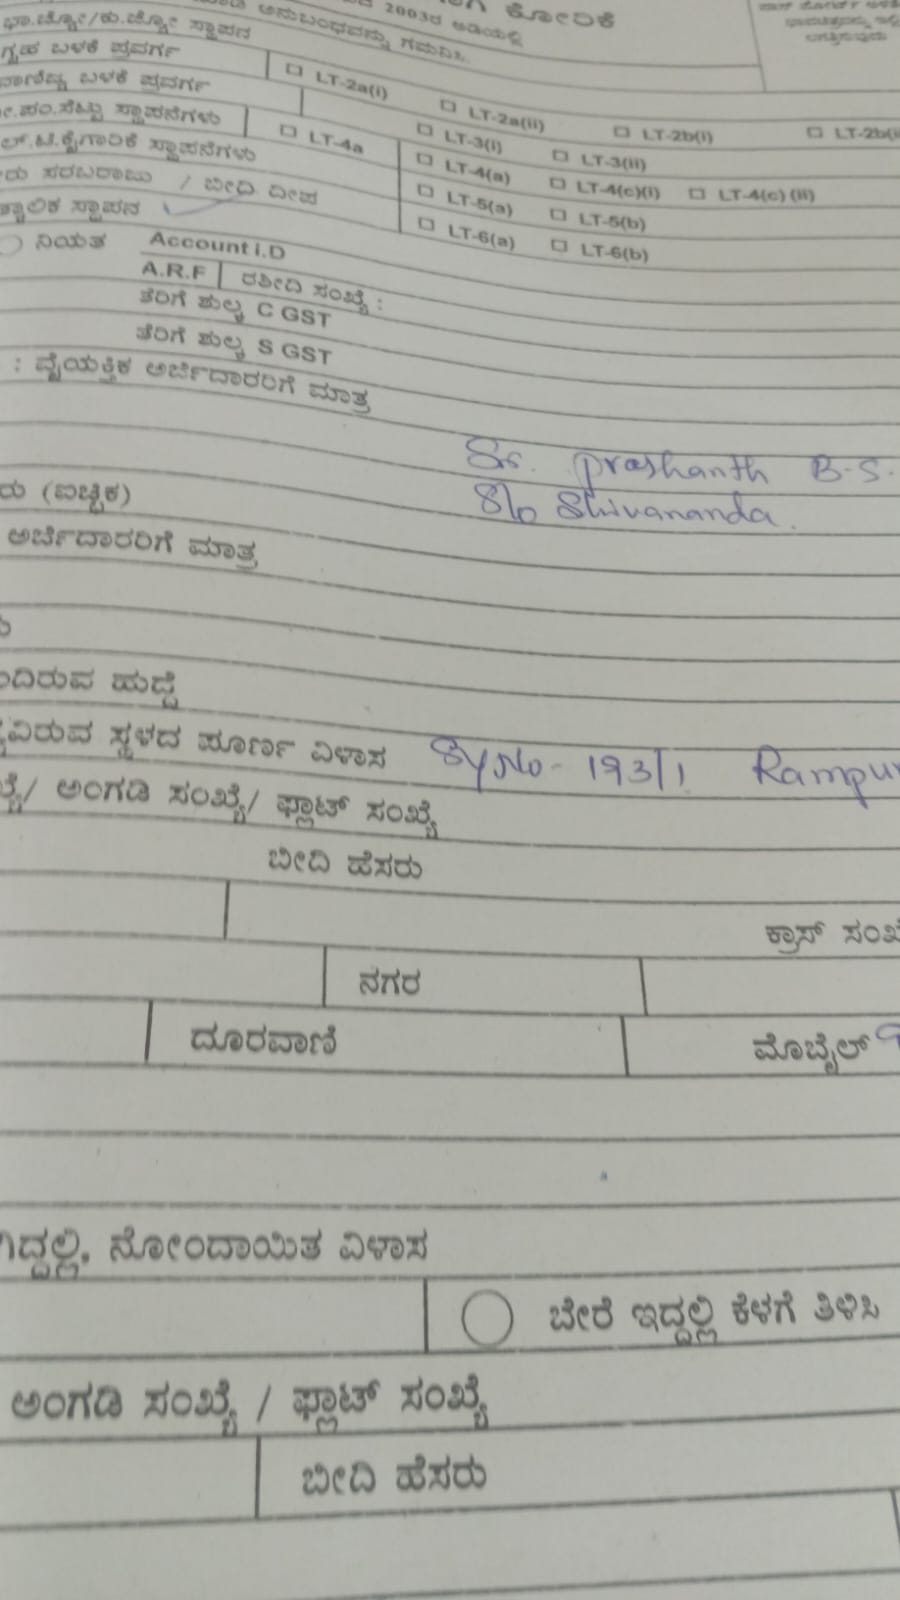 ಕೋರಿಕೆ
2003ರ ಅಡಿಯಲ್ಲಿ
ಅನುಬಂಧವನ್ನು ಗಮನಿಸಿ.
ಭಾ.ಜ್ಯೋ/ಕು.ಜ್ಯೋ ಸ್ಥಾಪನ
ಗೃಹ ಬಳಕೆ ಪ್ರವರ್ಗ □ LT-2a(i) □ LT-2a(ii) □ LT-2b(i) □ LT-2b(ii
ವಾಣಿಜ್ಯ ಬಳಕೆ ಪ್ರವರ್ಗ □ LT-3(i) □ LT-3(ii)
ಪಂ.ಸೆಟ್ಟು ಸ್ಥಾಪನೆಗಳು □ LT-4a □ LT-4(a) □ LT-4(c)(i) □ LT-4(c) (ii)
ಲ್.ಟಿ.ಕೈಗಾರಿಕೆ ಸ್ಥಾಪನೆಗಳು □ LT-5(a) □ LT-5(b)
ರು ಸರಬರಾಜು / ಬೀದಿ ದೀಪ □ LT-6(a) □ LT-6(b)
ತ್ಕಾಲಿಕ ಸ್ಥಾಪನ
ನಿಯತ Account I.D
A.R.F ರಶೀದಿ ಸಂಖ್ಯೆ :
ತೆರಿಗೆ ಶುಲ್ಕ C GST
ತೆರಿಗೆ ಶುಲ್ಕ S GST
: ವೈಯಕ್ತಿಕ ಅರ್ಜಿದಾರರಿಗೆ ಮಾತ್ರ
Sr. Prashanth B.S.
ರು (ಐಚ್ಛಿಕ) S/o Shivananda.
ಅರ್ಜಿದಾರರಿಗೆ ಮಾತ್ರ
ದಿರುವ ಹುದ್ದೆ
ವಿರುವ ಸ್ಥಳದ ಪೂರ್ಣ ವಿಳಾಸ Sy No - 193/1 Rampur
ಖ್ಯೆ/ ಅಂಗಡಿ ಸಂಖ್ಯೆ/ ಫ್ಲಾಟ್ ಸಂಖ್ಯೆ
ಬೀದಿ ಹೆಸರು
ಕ್ರಾಸ್ ಸಂಖ್ಯೆ
ನಗರ
ದೂರವಾಣಿ ಮೊಬೈಲ್
ಗಿದ್ದಲ್ಲಿ, ನೋಂದಾಯಿತ ವಿಳಾಸ
ಬೇರೆ ಇದ್ದಲ್ಲಿ ಕೆಳಗೆ ತಿಳಿಸಿ
ಅಂಗಡಿ ಸಂಖ್ಯೆ / ಫ್ಲಾಟ್ ಸಂಖ್ಯೆ
ಬೀದಿ ಹೆಸರು